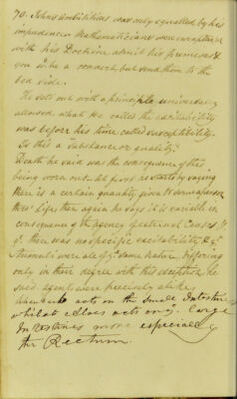 70. John's ambitions was only equalled by his
impudence. Mathematicians were enraptured
with his Doctrine admit his premises &
you'd be a convert, but send them to the
sea side.
He sets out with a principle universally
allowed what he called the excitability
was before his time called susceptibility.
Is this a substance or quality?
Death he said was the consequence of this
being worn out. At first he starts by saying
there is a certain quantity given to every person
thro' life, then again he says it is variable in
consequence of the agency of external causes. If
yt. there was no specific excitability, & yt.
Stimuli were all of ye same nature, differing
only in their degree with this exception, he
said agents were precisely alike,
acts on the Small Intestines
whilst Aloes acts on ye. large
Intestines more especially
the Rectum.